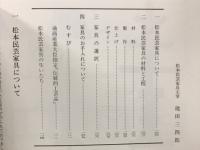 松本民芸家具主宰 池田三四郎
一 松本民芸家具について
二 松本民芸家具の材料と工程
材料
製作
仕上げ
デザイン
三 家具の選択
四 家具のお手入れについて
むすび
通商産業大臣指定、伝統的工芸品
松本民芸家具の
一
松本民芸家具について